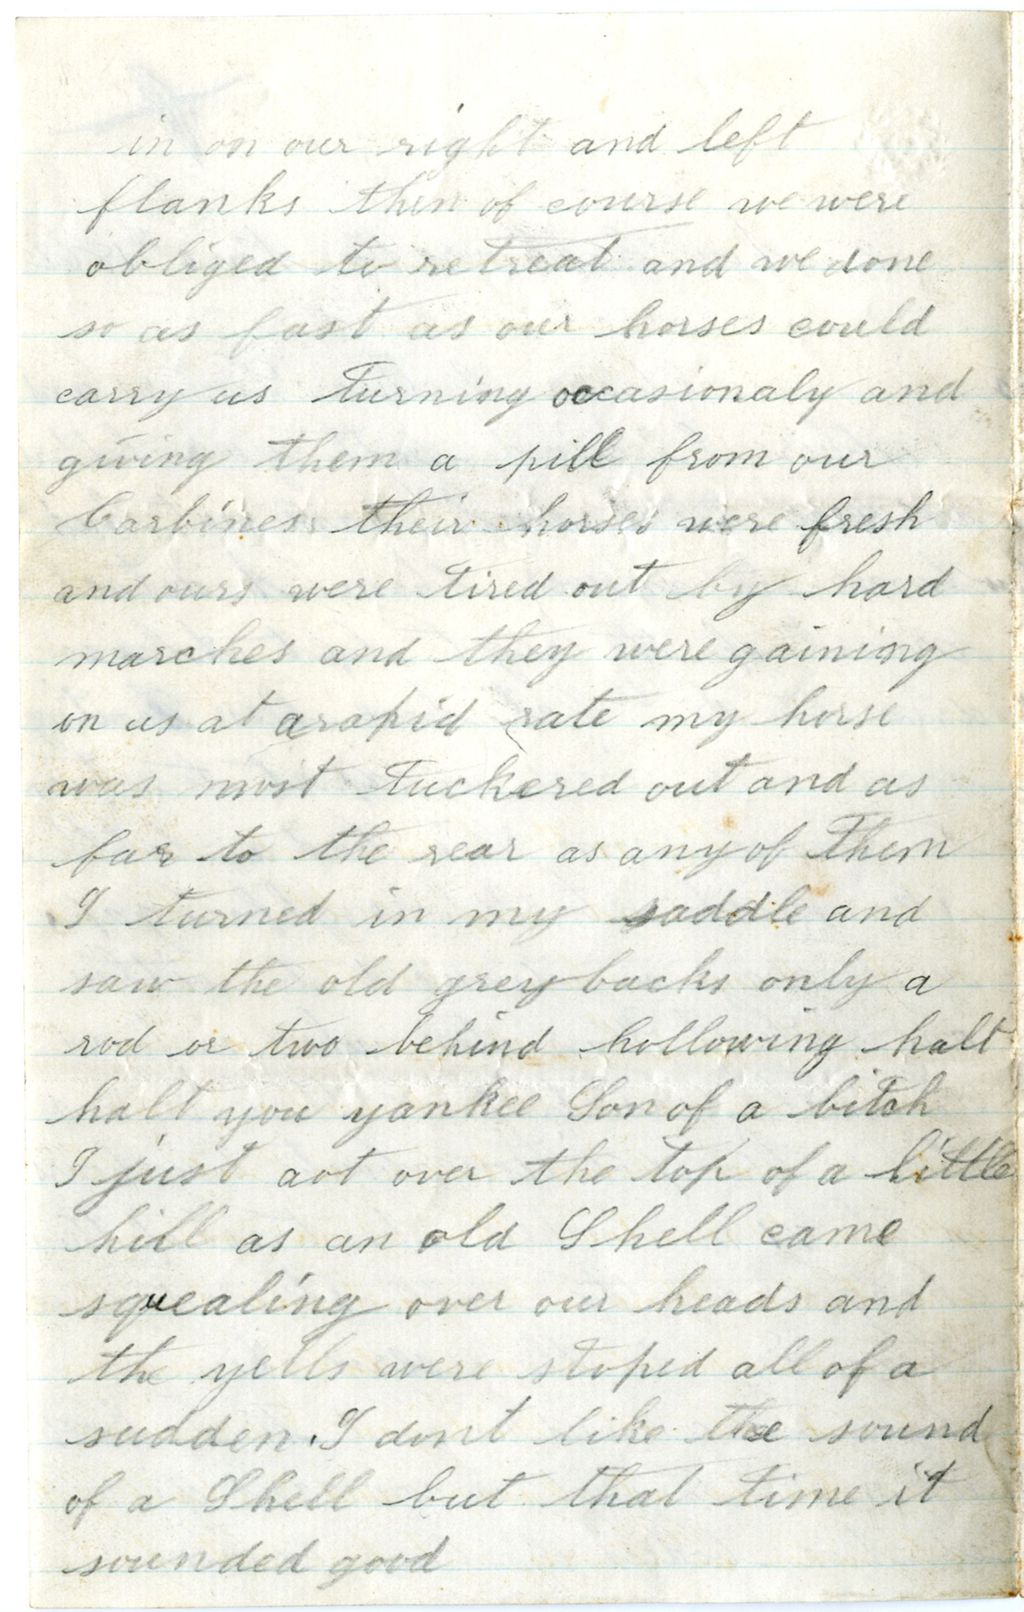 in on our right and left
flanks then of course we were
obliged to retreat and we done
so as fast as our horses could
carry us turning occasionaly and
giving them a pill from our
Carbines their horses were fresh
and ours were tired out by hard
marches and they were gaining
on us at a rapid rate my horse
was most tuckered out and as
far to the rear as any of them
I turned in my saddle and
saw the old grey backs only a
rod or two behind hollowing halt
halt you yankee Son of a bitch
I just got over the top of a little
hill as an old Shell came
squealing over our heads and
the yells were stoped all of a
sudden. I dont like the sound
of a Shell but that time it
sounded good